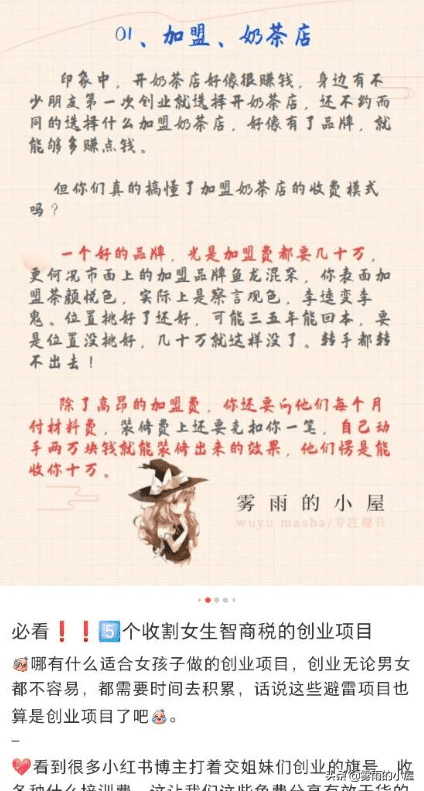 01、加盟、奶茶店
印象中，开奶茶店好像很赚钱，身边有不
少朋友第一次创业就选择开奶茶店，还不约而
同的选择什么加盟奶茶店，好像有了品牌，就
能够多赚点钱。
但你们真的搞懂了加盟奶茶店的收费模式
吗？
一个好的品牌，光是加盟费都要几十万，
更何况市面上的加盟品牌鱼龙混杂，你表面加
盟茶颜悦色，实际上是察言观色，李逵变李
鬼。位置挑好了还好，可能三五年能回本，要
是位置没挑好，几十万就这样没了。转手都转
不出去！
除了高昂的加盟费，你还要向他们每个月
付材料费，装修费上还要克扣你一笔，自己动
手两万块钱就能装修出来的效果，他们愣是能
收你十万。
雾雨的小屋
wuyu masha/专注提升
必看❗❗5️⃣个收割女生智商税的创业项目
哪有什么适合女孩子做的创业项目，创业无论男女
都不容易，都需要时间去积累，话说这些避雷项目也
算是创业项目了吧。
–
看到很多小红书博主打着交姐妹们创业的旗号，收
各种什么培训费，这让我们这些免费分享有效干货的
头条 @雾雨的小屋